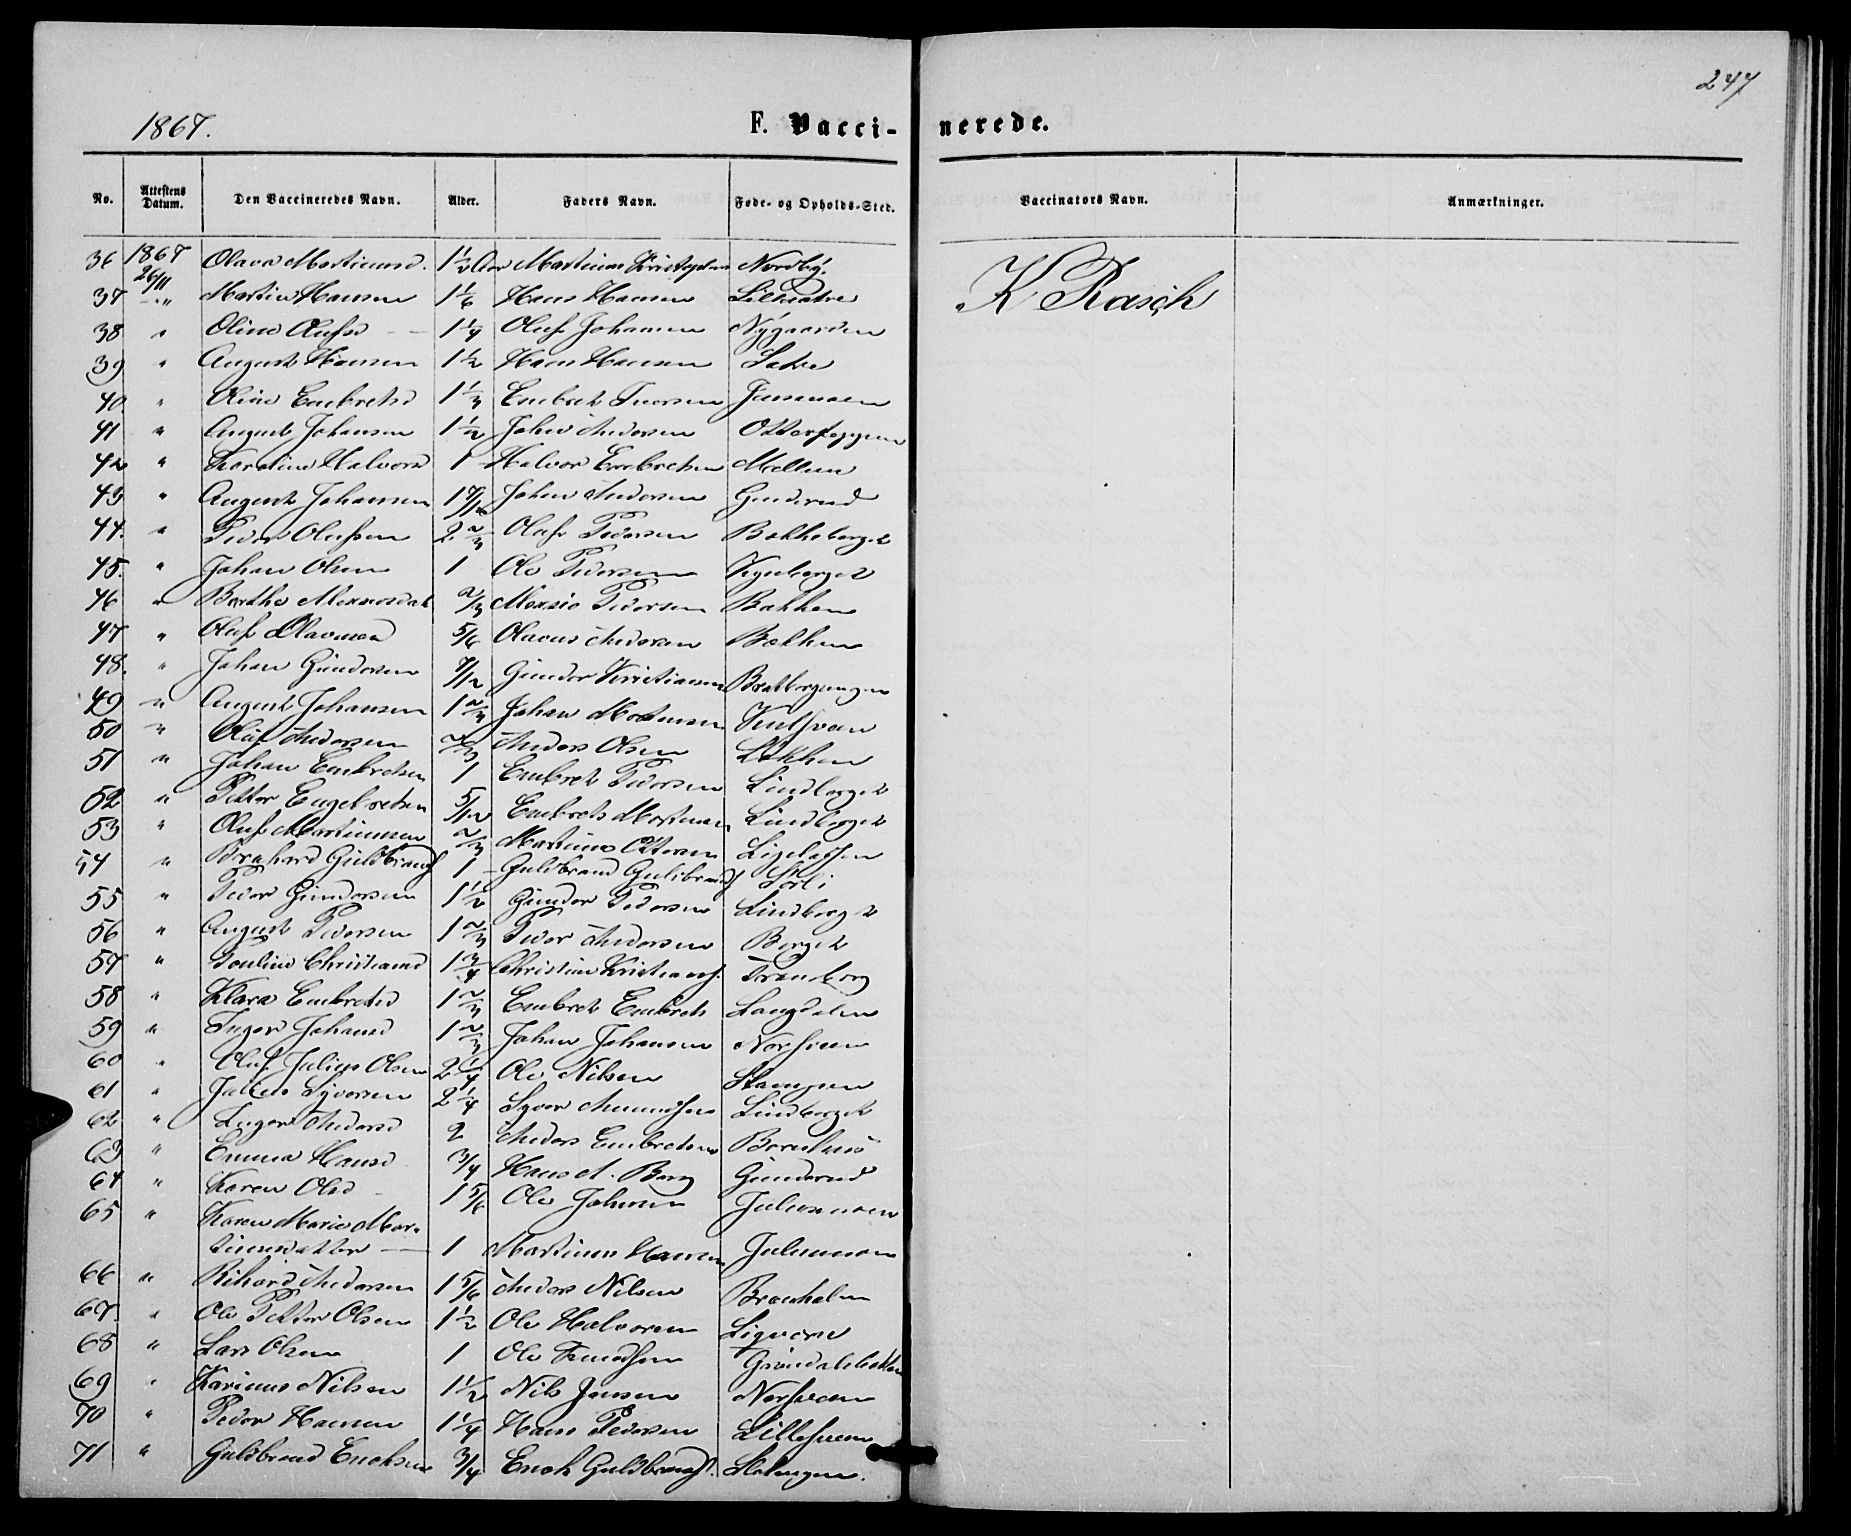 247
1867.
F. Vacci-nerede.
No. Attestens Datum. Den Vaccineredes Navn. Alder. Faders Navn. Føde- og Opholds-Sted. Vaccinators Navn. Anmærkninger.
36 1867 26/11 Olava Martinusd. 1 1/2 Aar Martinus Nordby. K Rasch
37 " Martin Hansen 1 1/6 Hans Hansen
38 " Oline Olufsd 1 1/4 Oluf Johansen Nygaarden
39 " August Hansen 1 1/2 Hans Hansen Sætre
40 " Oline Embretsd 1 1/3 Embret Iversen
41 " August Johansen 1 1/2 Johan Andersen
42 " Karoline Halvorsd 1 Halvor Embretsen Mellem
43 " August Johansen 1 7/12 Johan Andersen Gunderud
44. " Peder Olufsen 2 2/3 Oluf Pedersen Bakkeberget
45. " Johan Olsen 1 Ole Pedersen
46 " Berthe 2/3 Pedersen Bakken
47 " Oluf Olavusen 5/6 Olavus Andersen Bakken
48. " Johan Gundersen 7/12 Gunder Kristiansen
49 " August Johansen 1 2/3 Johan Mortensen
50 " Oluf Andersen 2/3 Anders Olsen Løkken
51 " Johan Embretsen 1 Embret Pedersen Lindberget
52 " Petter Engebretsen 5/12 Embret Mortensen Lindberget
53 " Oluf Martinusen 2/3 Martinus Ottersen
54 " Bernhard Guldbrands 1 Guldbrand Guldbrands
55 " Peder Gundersen 1 1/2 Gunder Pedersen Lindberget
56 " August Pedersen 1 2/3 Peder Andersen Berget
57 " Pouline Christiansd 1 3/4 Christian Kristians. Tranberg
58 " Klara Embretsd 1 2/3 Embret Embrets Langdalen
59 " Inger Johansd 1 2/3 Johan Johansen
60 " Oluf Julius Olsen 2 1/4 Ole Nilsen Stangen
61 " Julius Syversen 2 1/4 Syver Amundsen Lindberget
62 " Inger Andersd 2 Anders Embretsen
63 " Emma Hansd 3/4 Hans A. Berg Gunderud
64 " Karen Olsd 1 5/6 Ole Johnsen Julusmoen
65 " Karen Marie Mar-
tinusdatter 1 Martinus Hansen Julusmoen
66 " Rikard Andersen 1 5/6 Anders Nilsen Braaholen
67. " Ole Petter Olsen 1 1/2 Ole Halvorsen
68 " Lars Olsen 1 Ole Knudsen
69 " Karinus Nilsen 1 1/2 Nils Jensen
70 " Peder Hansen 1 1/4 Hans Pedersen
71 " Guldbrand Enoksen 3/4 Enok Guldbrands.